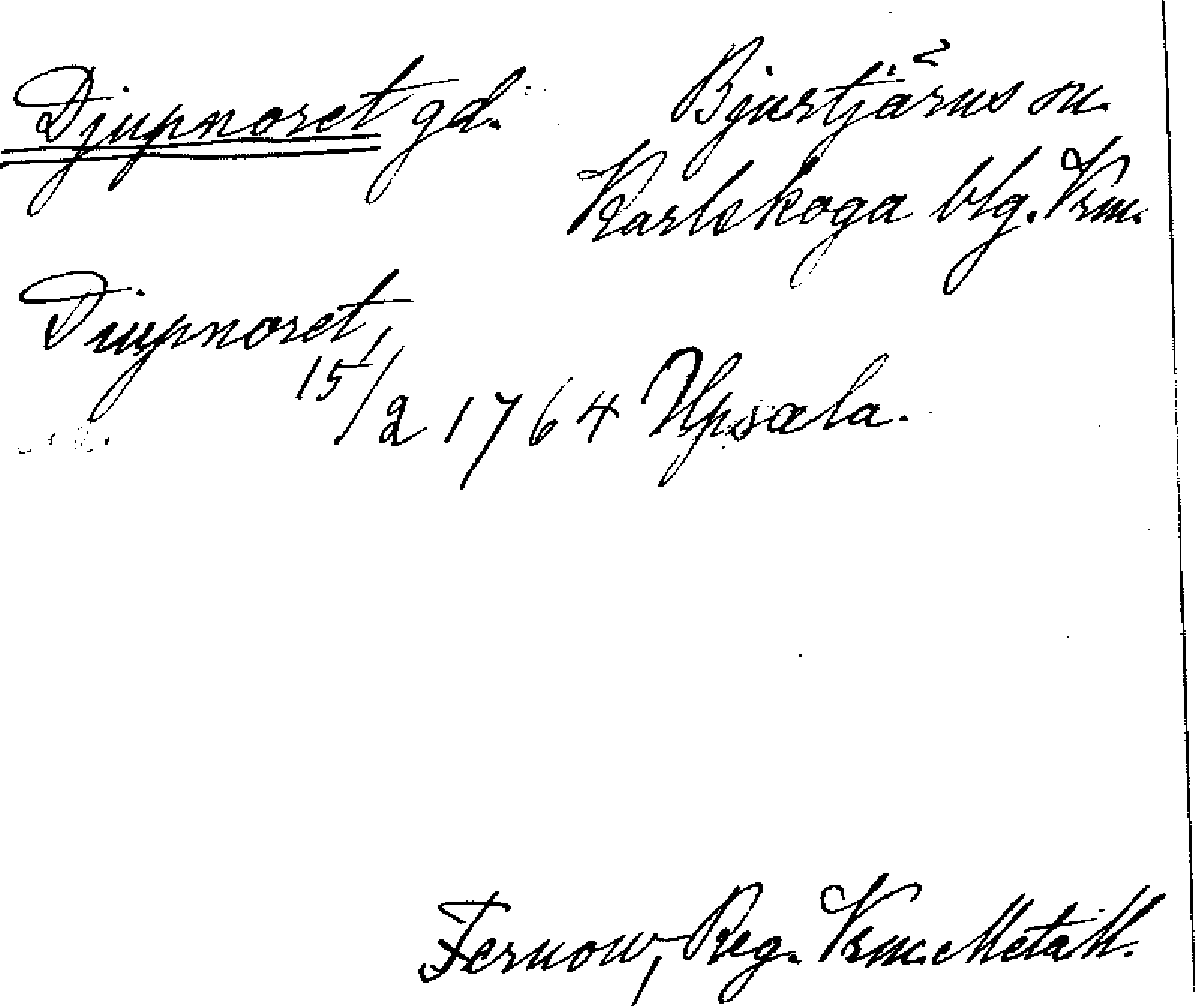 Djupnoret gd. Bjurtjärns sn.
Karlskoga blg. Vrm.
Diupnoret,
15/2 1764 Upsala.
Fernow, Reg. Vrm. Metall.